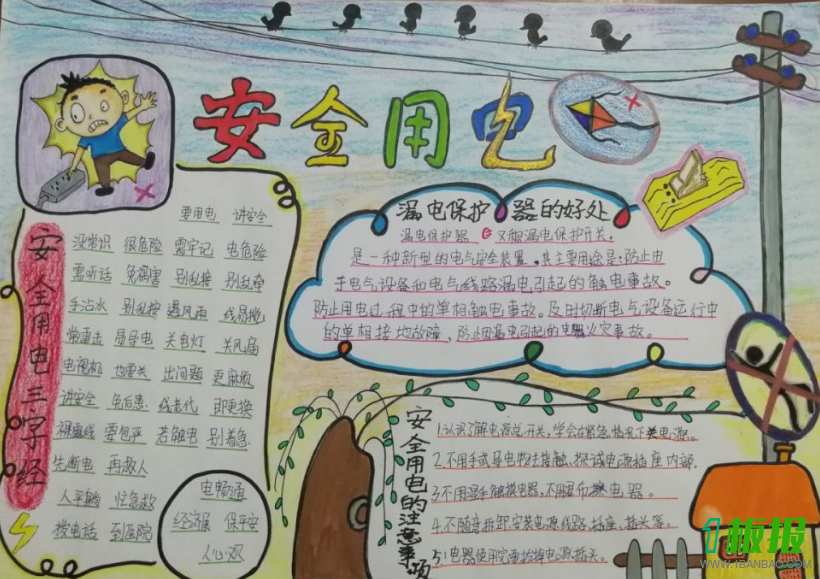 安全用电
安全用电三字经
要用电 讲安全
没常识 很危险 需牢记 电危险
需听话 免祸害 别乱接 别乱牵
手沾水 别乱按 遇风雨 线易搅
常雷击 易导电 关电灯 关风扇
电视机 也要关 出问题 更麻烦
讲安全 免后患 线老代 即更换
裸露线 要包严 若触电 别着急
先断电 再救人
人平躺 忙急救
拨电话 到医院
电畅通
经济展 保平安
人心欢
漏电保护器的好处
漏电保护器 又称漏电保护开关,
是一种新型的电气安全装置,其主要用途是:防止由
于电气设备和电气线路漏电引起的触电事故。
防止用电过程中的单相触电事故。及时切断电气设备运行中
的单相接地故障,防止因漏电引起的电器火灾事故。
安全用电的注意事项
1.认识了解电源总开关,学会在紧急情况下关电源。
2.不用手或导电物址接触,探试电源插座内部.
3.不用湿手触摸电器,不用湿布擦电器。
4.不随意拆卸安装电源线路,插座、插头等。
5.电器使用完要拔掉电源插头。
1板报
WWW.1BANBAO.COM